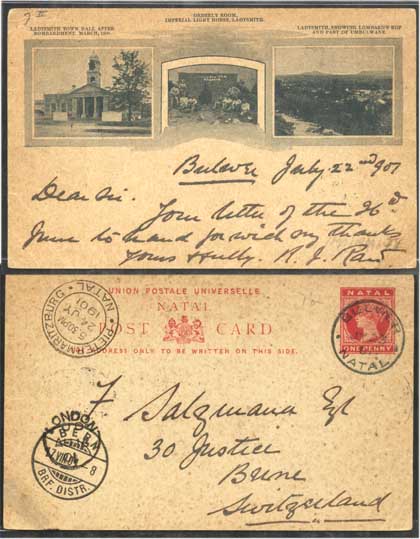 LADYSMITH TOWN HALL AFTER
BOMBARDMENT, MARCH, 1900.
ORDERLY ROOM,
IMPERIAL LIGHT HORSE, LADYSMITH.
LADYSMITH, SHOWING LOMBARD'S KOP
AND PART OF UMBULWANE.
Bulwer July 22nd 1901
Dear Sir. Your letter of the
June to hand for wich my thanks
Yours
UNION POSTALE UNIVERSELLE
NATAL
POST CARD
ADDRESS ONLY TO BE WRITTEN ON THIS SIDE.
NATAL
ONE PENNY
BULWER
NATAL
PIETERMARITZBURG · NATAL
5.30PM
JY
1901
F Salzmann
30 Justice
Berne
Switzerland
LONDON
BERN
BRF. DISTR.